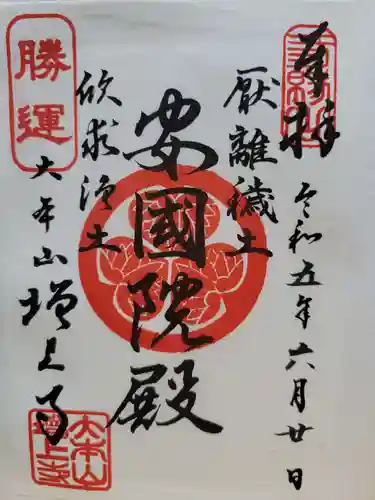 奉拝
令和五年六月廿日
厭離穢土
安國院殿
欣求浄土
勝運
大本山
増上寺
大本山
増上寺